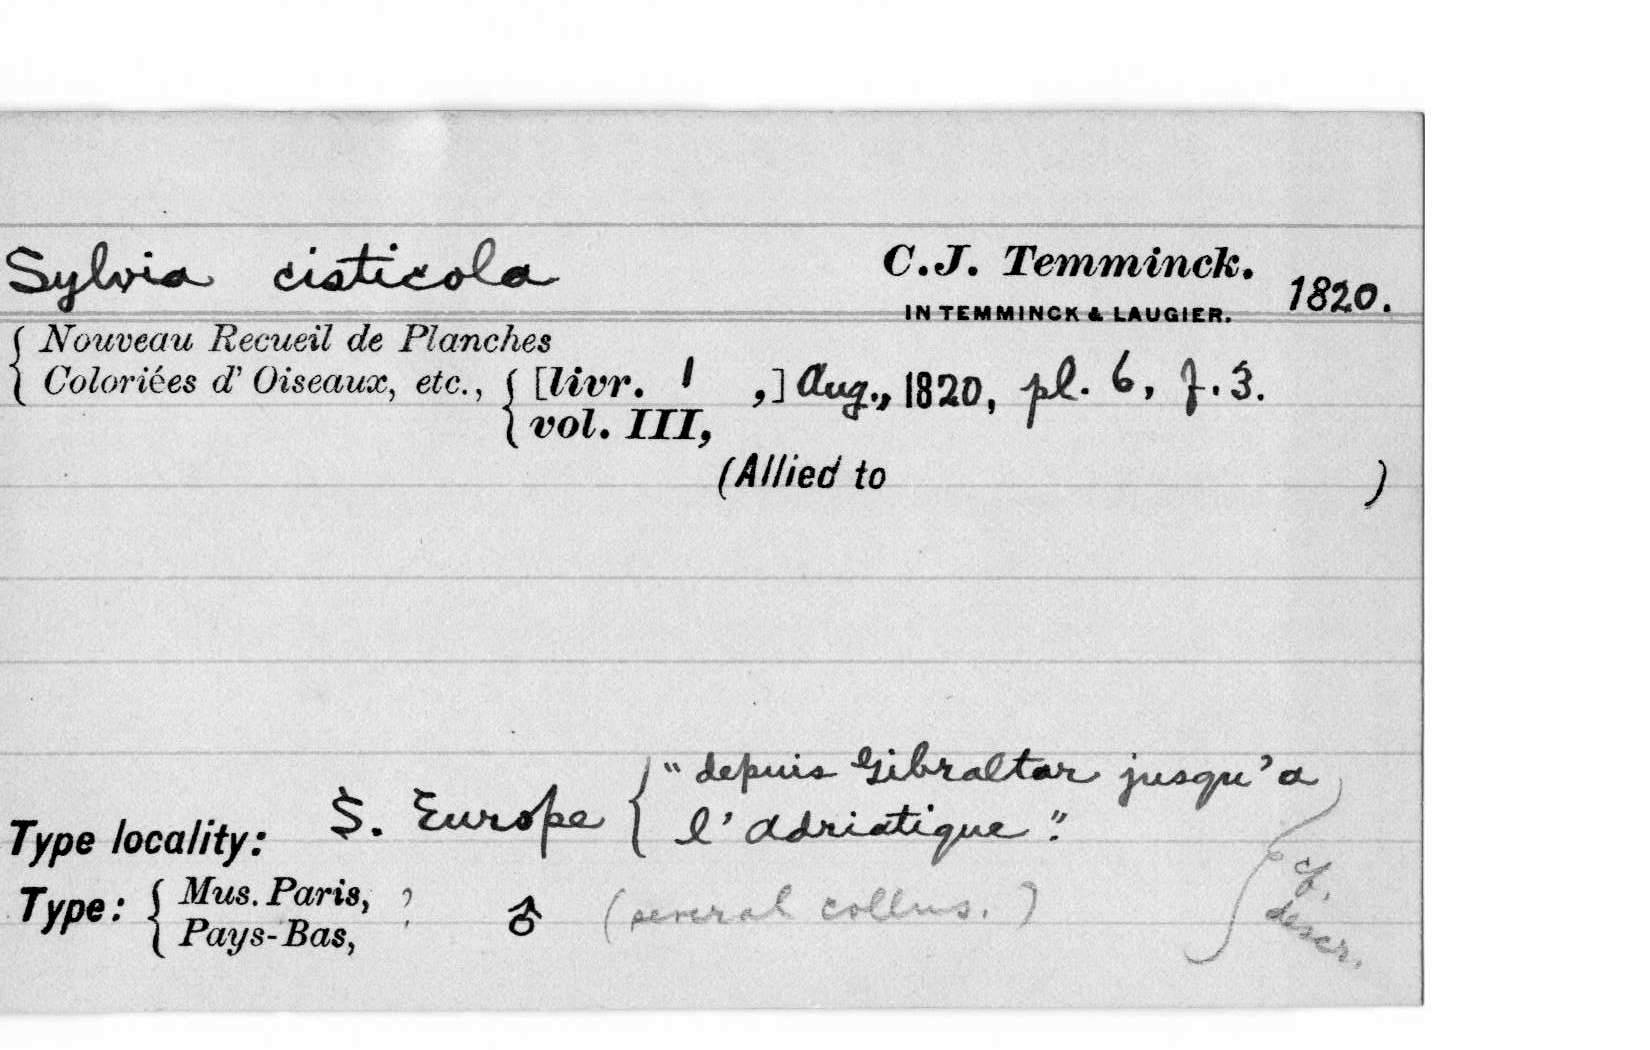 Sylvia cisticola C.J. Temminck. 1820.
IN TEMMINCK & LAUGIER.
{ Nouveau Recueil de Planches
Coloriées d' Oiseaux, etc., { [livr. 1 ,] Aug., 1820, pl. 6, f. 3.
vol. III,
(Allied to )
"depuis Gibraltar jusqu'a
Type locality: S. Europe { l'Adriatique".
Type: { Mus. Paris, ? ♂ (several collns.) cf.
Pays-Bas, descr.